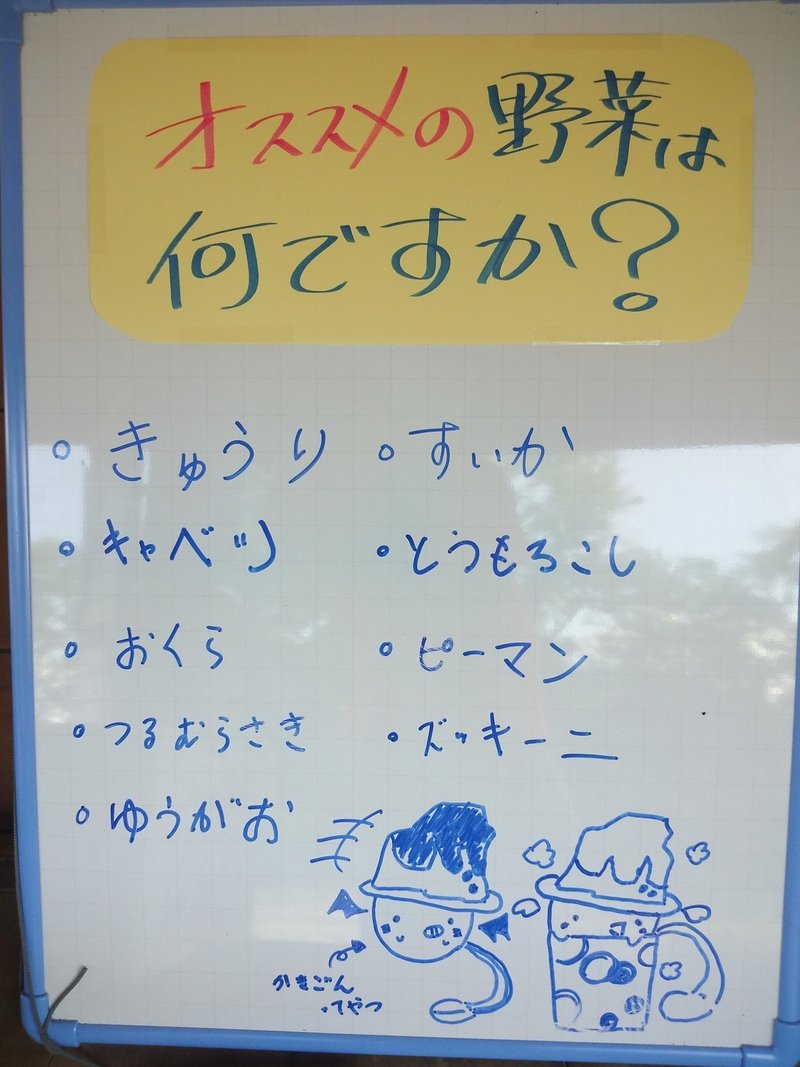 オススメの野菜は
何ですか?
• きゅうり
• キャベツ
• おくら
• つるむらさき
• ゆうがお
• すいか
• とうもろこし
• ピーマン
• ズッキーニ
かきごん
ってやつ